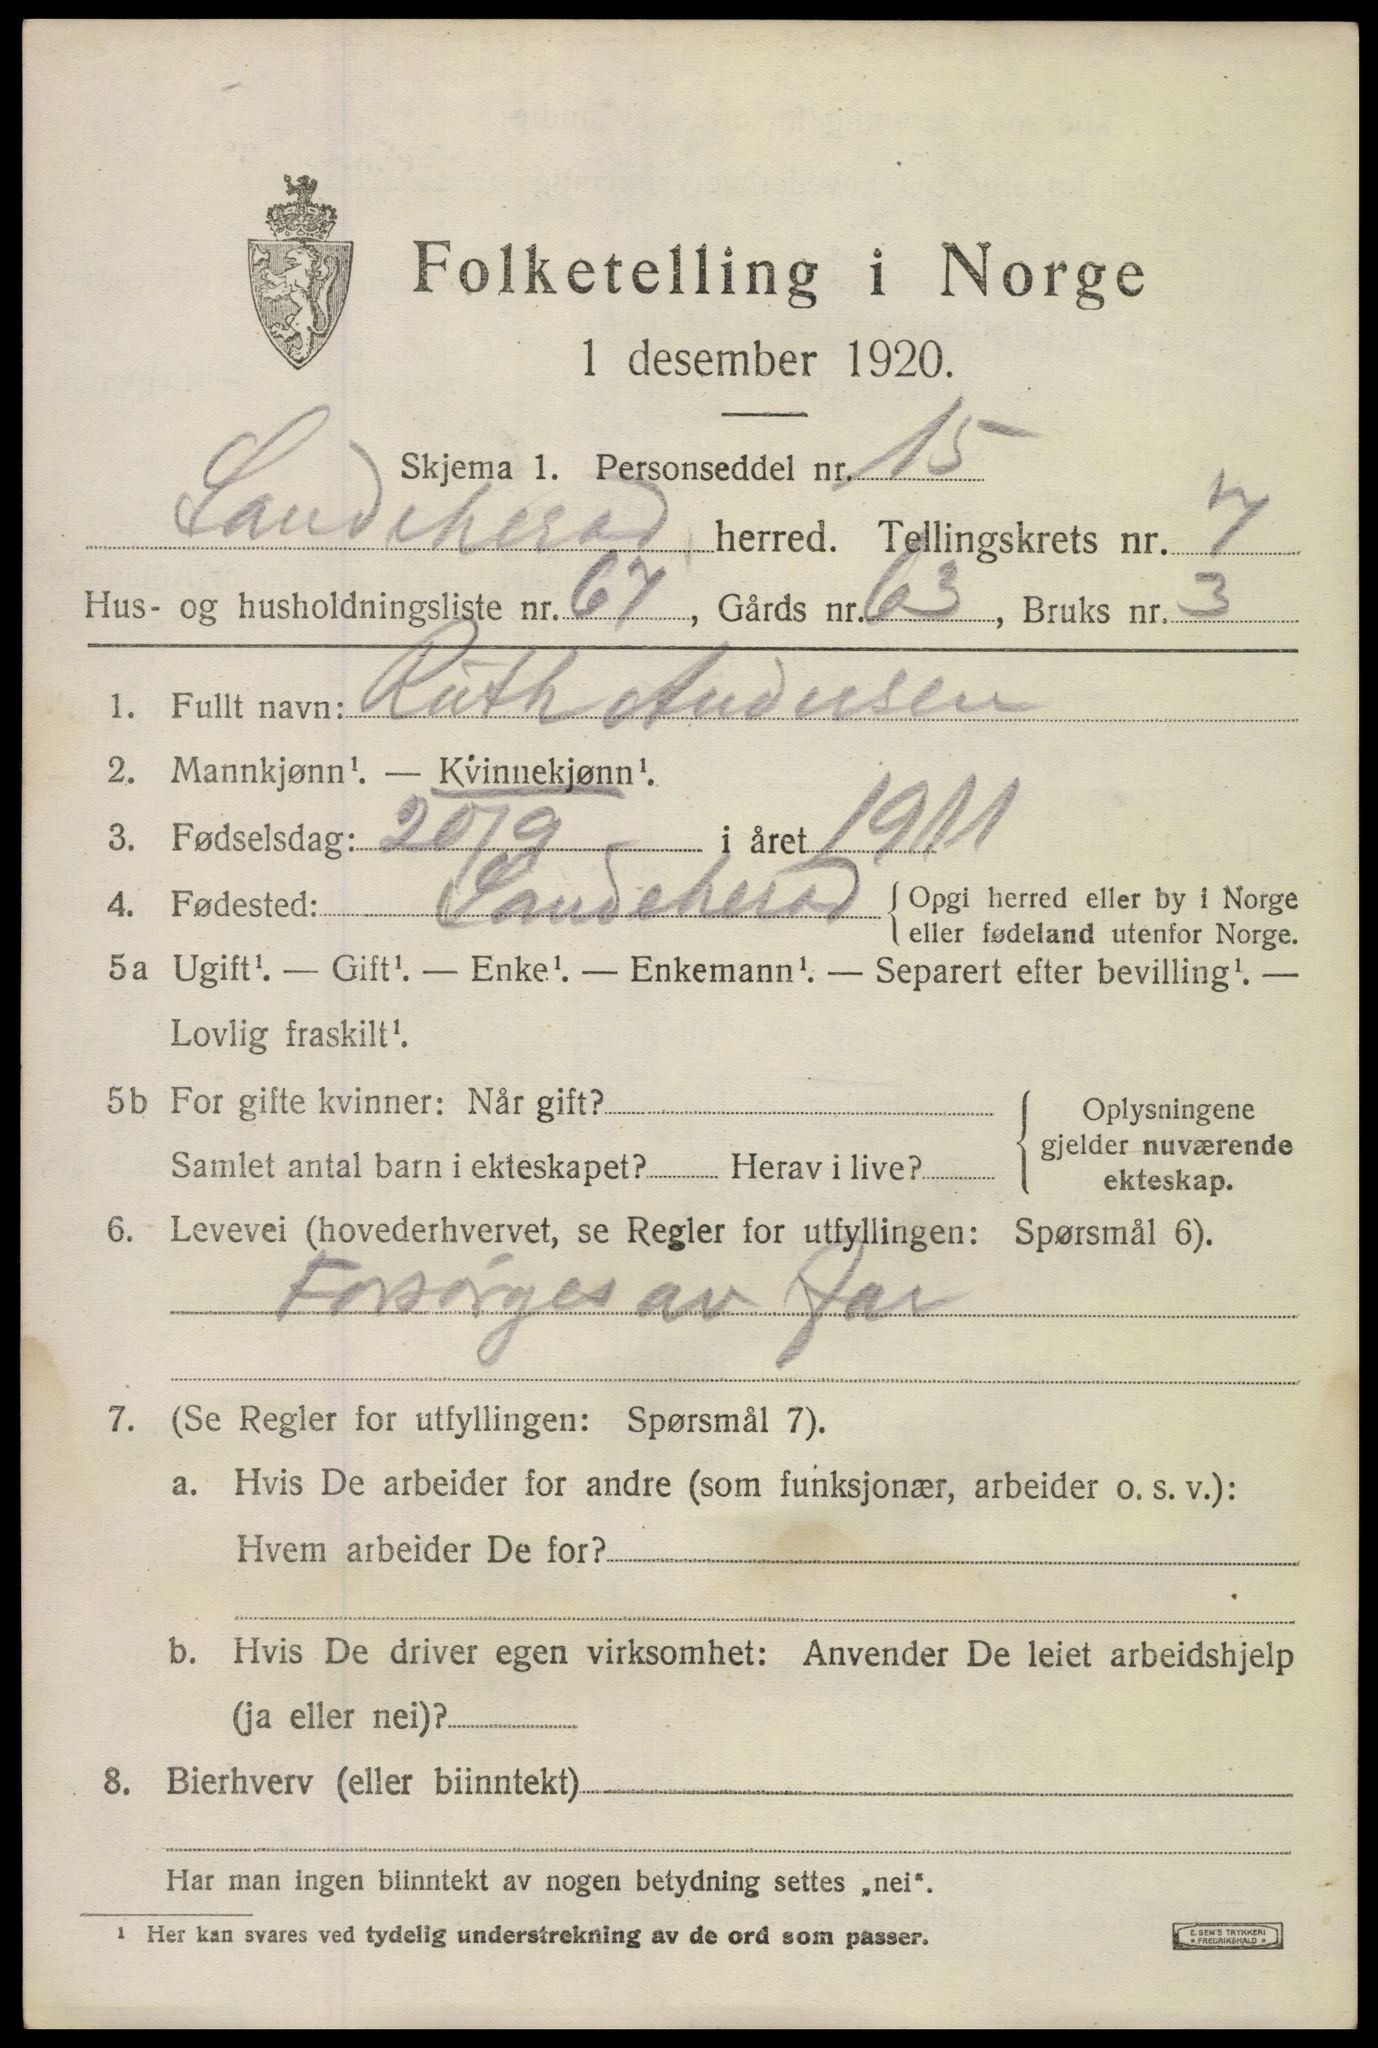 Folketelling i Norge
1 desember 1920.
Skjema 1. Personseddel nr. 15
Sandeherad herred. Tellingskrets nr. 7
Hus- og husholdningsliste nr. 67, Gårds nr. 63, Bruks nr. 3
1. Fullt navn: Ruth Andersen
2. Mannkjønn¹. — Kvinnekjønn¹.
3. Fødselsdag: 20/9 i året 1911
4. Fødested: Sandeherad { Opgi herred eller by i Norge
eller fødeland utenfor Norge.
5a Ugift¹. — Gift¹. — Enke¹. — Enkemann¹. — Separert efter bevilling¹. —
Lovlig fraskilt¹.
5b For gifte kvinner: Når gift?
Samlet antal barn i ekteskapet? Herav i live?
{ Oplysningene
gjelder nuværende
ekteskap.
6. Levevei (hovederhvervet, se Regler for utfyllingen: Spørsmål 6).
Forsörges av Far
7. (Se Regler for utfyllingen: Spørsmål 7).
a. Hvis De arbeider for andre (som funksjonær, arbeider o. s. v.):
Hvem arbeider De for?
b. Hvis De driver egen virksomhet: Anvender De leiet arbeidshjelp
(ja eller nei)?
8. Bierhverv (eller biinntekt)
Har man ingen biinntekt av nogen betydning settes „nei“.
¹ Her kan svares ved tydelig understrekning av de ord som passer.
E. SEM'S TRYKKERI
* FREDRIKSHALD *